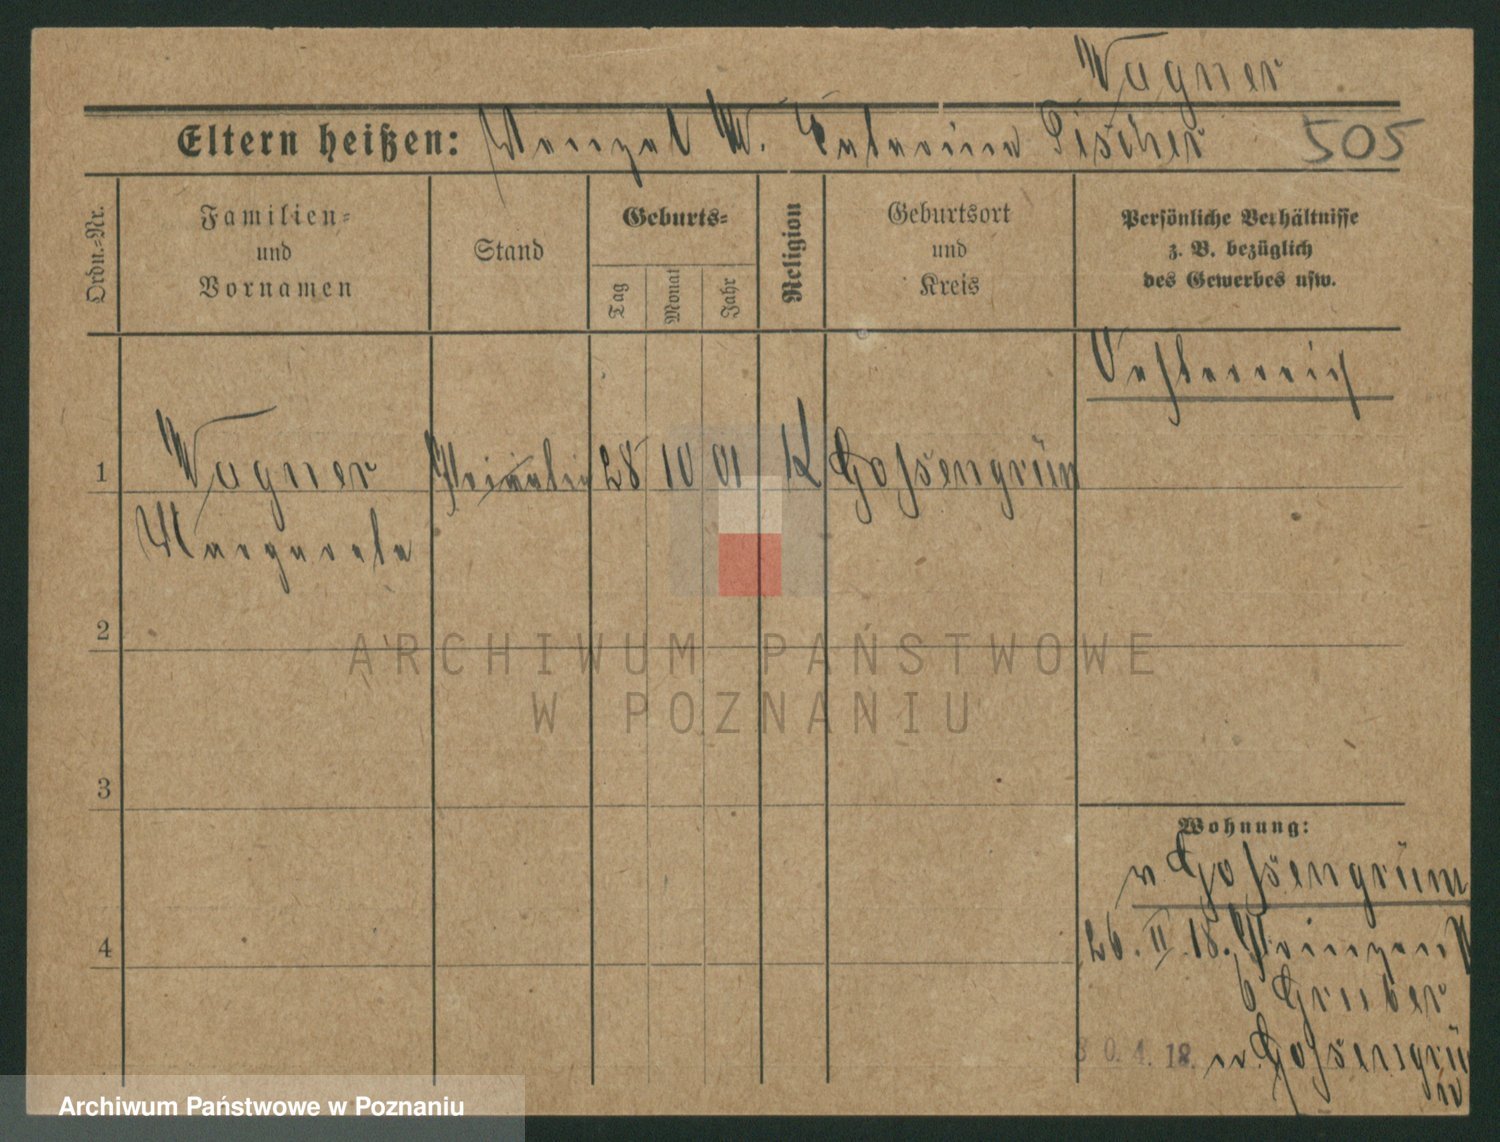 Wagner
Eltern heißen: Wenzel W. Katarina Pischer 505
Ordn.-Nr.
Familien-
und
Vornamen
Stand
Geburts-
Tag
Monat
Jahr
Religion
Geburtsort
und
Kreis
Persönliche Verhältnisse
z. B. bezüglich
des Gewerbes usw.
Oesterreich
1 Wagner 28 10 01 K Gossengrün
Margarete
2
3
4
Wohnung:
v Gossengrün
26. II 18.
b Gruber
30.4.18. n. Gossengrün
ARCHIWUM PAŃSTWOWE
W POZNANIU
Archiwum Państwowe w Poznaniu